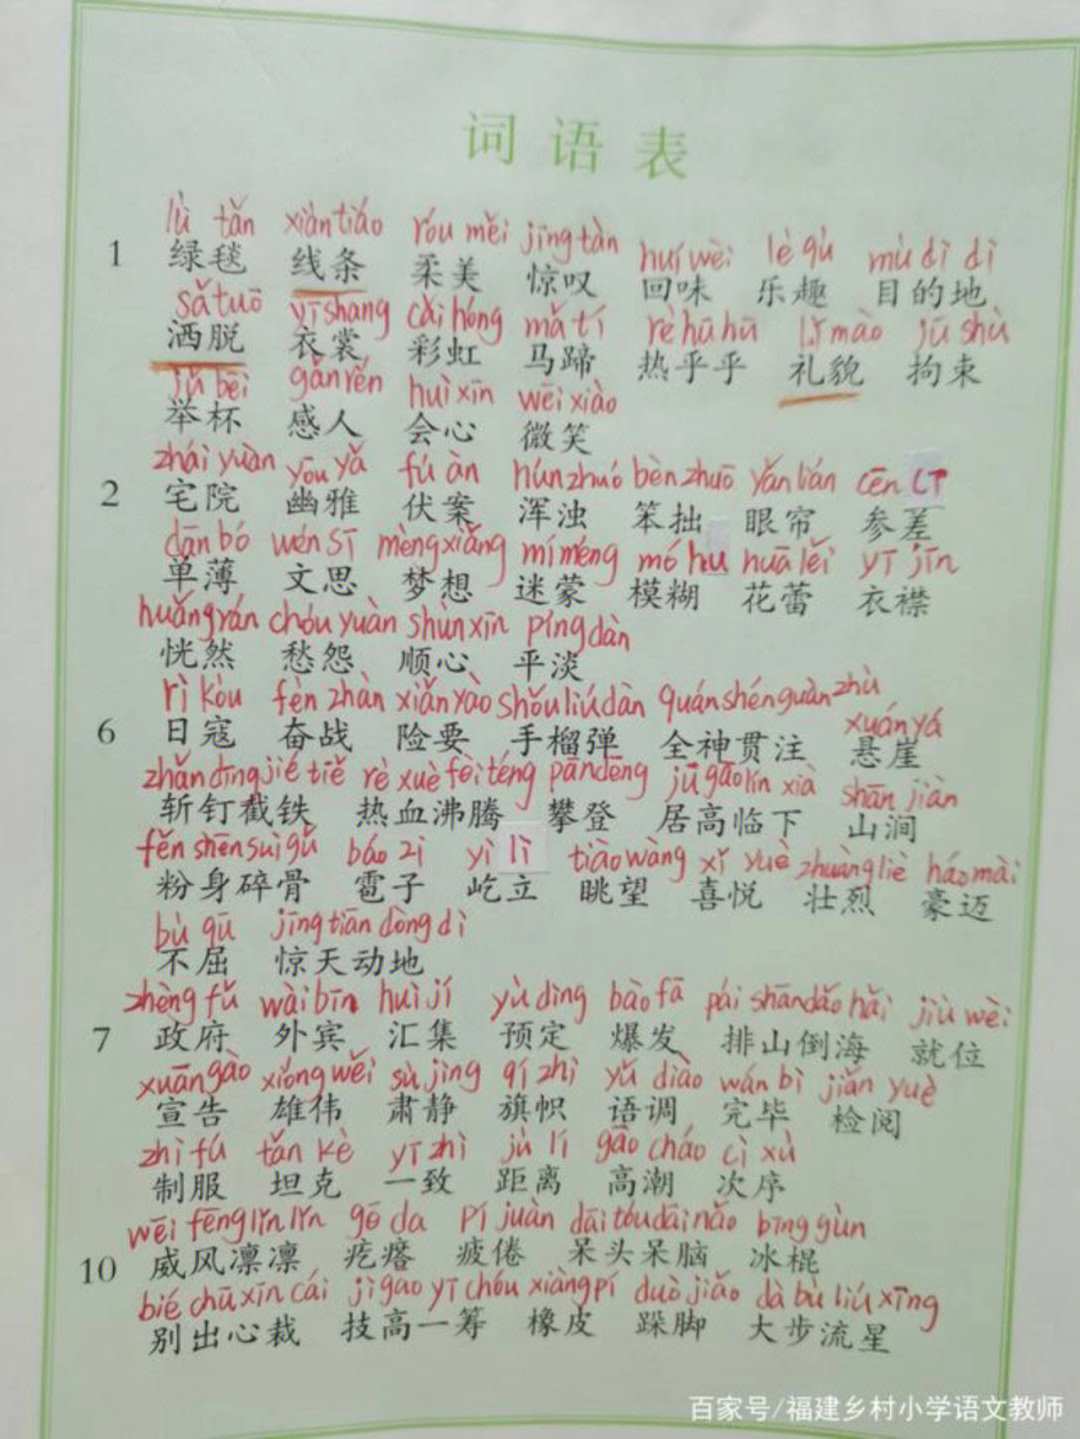 词语表
lǜ tǎn xiàn tiáo róu měi jīng tàn huí wèi lè qù mù dì dì
1 绿毯 线条 柔美 惊叹 回味 乐趣 目的地
sǎ tuō yī shang cǎi hóng mǎ tí rè hū hū lǐ mào jū shù
洒脱 衣裳 彩虹 马蹄 热乎乎 礼貌 拘束
jǔ bēi gǎn rén huì xīn wēi xiào
举杯 感人 会心 微笑
zhái yuàn yōu yǎ fú àn hún zhuó bèn zhuō yǎn lián cēn
2 宅院 幽雅 伏案 浑浊 笨拙 眼帘 参差
dān bó wén sī mèng xiǎng mí méng mó hu huā lěi yī jīn
单薄 文思 梦想 迷蒙 模糊 花蕾 衣襟
huǎng rán chóu yuàn shùn xīn píng dàn
恍然 愁怨 顺心 平淡
rì kòu fèn zhàn xiǎn yào shǒu liú dàn quán shén guàn zhù xuán yá
6 日寇 奋战 险要 手榴弹 全神贯注 悬崖
zhǎn dīng jié tiě rè xuè fèi téng pān dēng jū gāo lín xià shān jiàn
斩钉截铁 热血沸腾 攀登 居高临下 山涧
fěn shēn suì gǔ báo zi yì lì tiào wàng xǐ yuè zhuàng liè háo mài
粉身碎骨 雹子 屹立 眺望 喜悦 壮烈 豪迈
bù qū jīng tiān dòng dì
不屈 惊天动地
zhèng fǔ wài bīn huì jí yù dìng bào fā pái shān dǎo hǎi jiù wèi
7 政府 外宾 汇集 预定 爆发 排山倒海 就位
xuān gào xióng wěi sù jìng qí zhì yǔ diào wán bì jiǎn yuè
宣告 雄伟 肃静 旗帜 语调 完毕 检阅
zhì fú tǎn kè yī zhì jù lí gāo cháo cì xù
制服 坦克 一致 距离 高潮 次序
wēi fēng lǐn lǐn gē da pí juàn dāi tóu dāi nǎo bīng gùn
威风凛凛 疙瘩 疲倦 呆头呆脑 冰棍
10
bié chū xīn cái jì gao yī chóu xiàng pí duò jiǎo dà bù liú xīng
别出心裁 技高一筹 橡皮 跺脚 大步流星
百家号/福建乡村小学语文教师